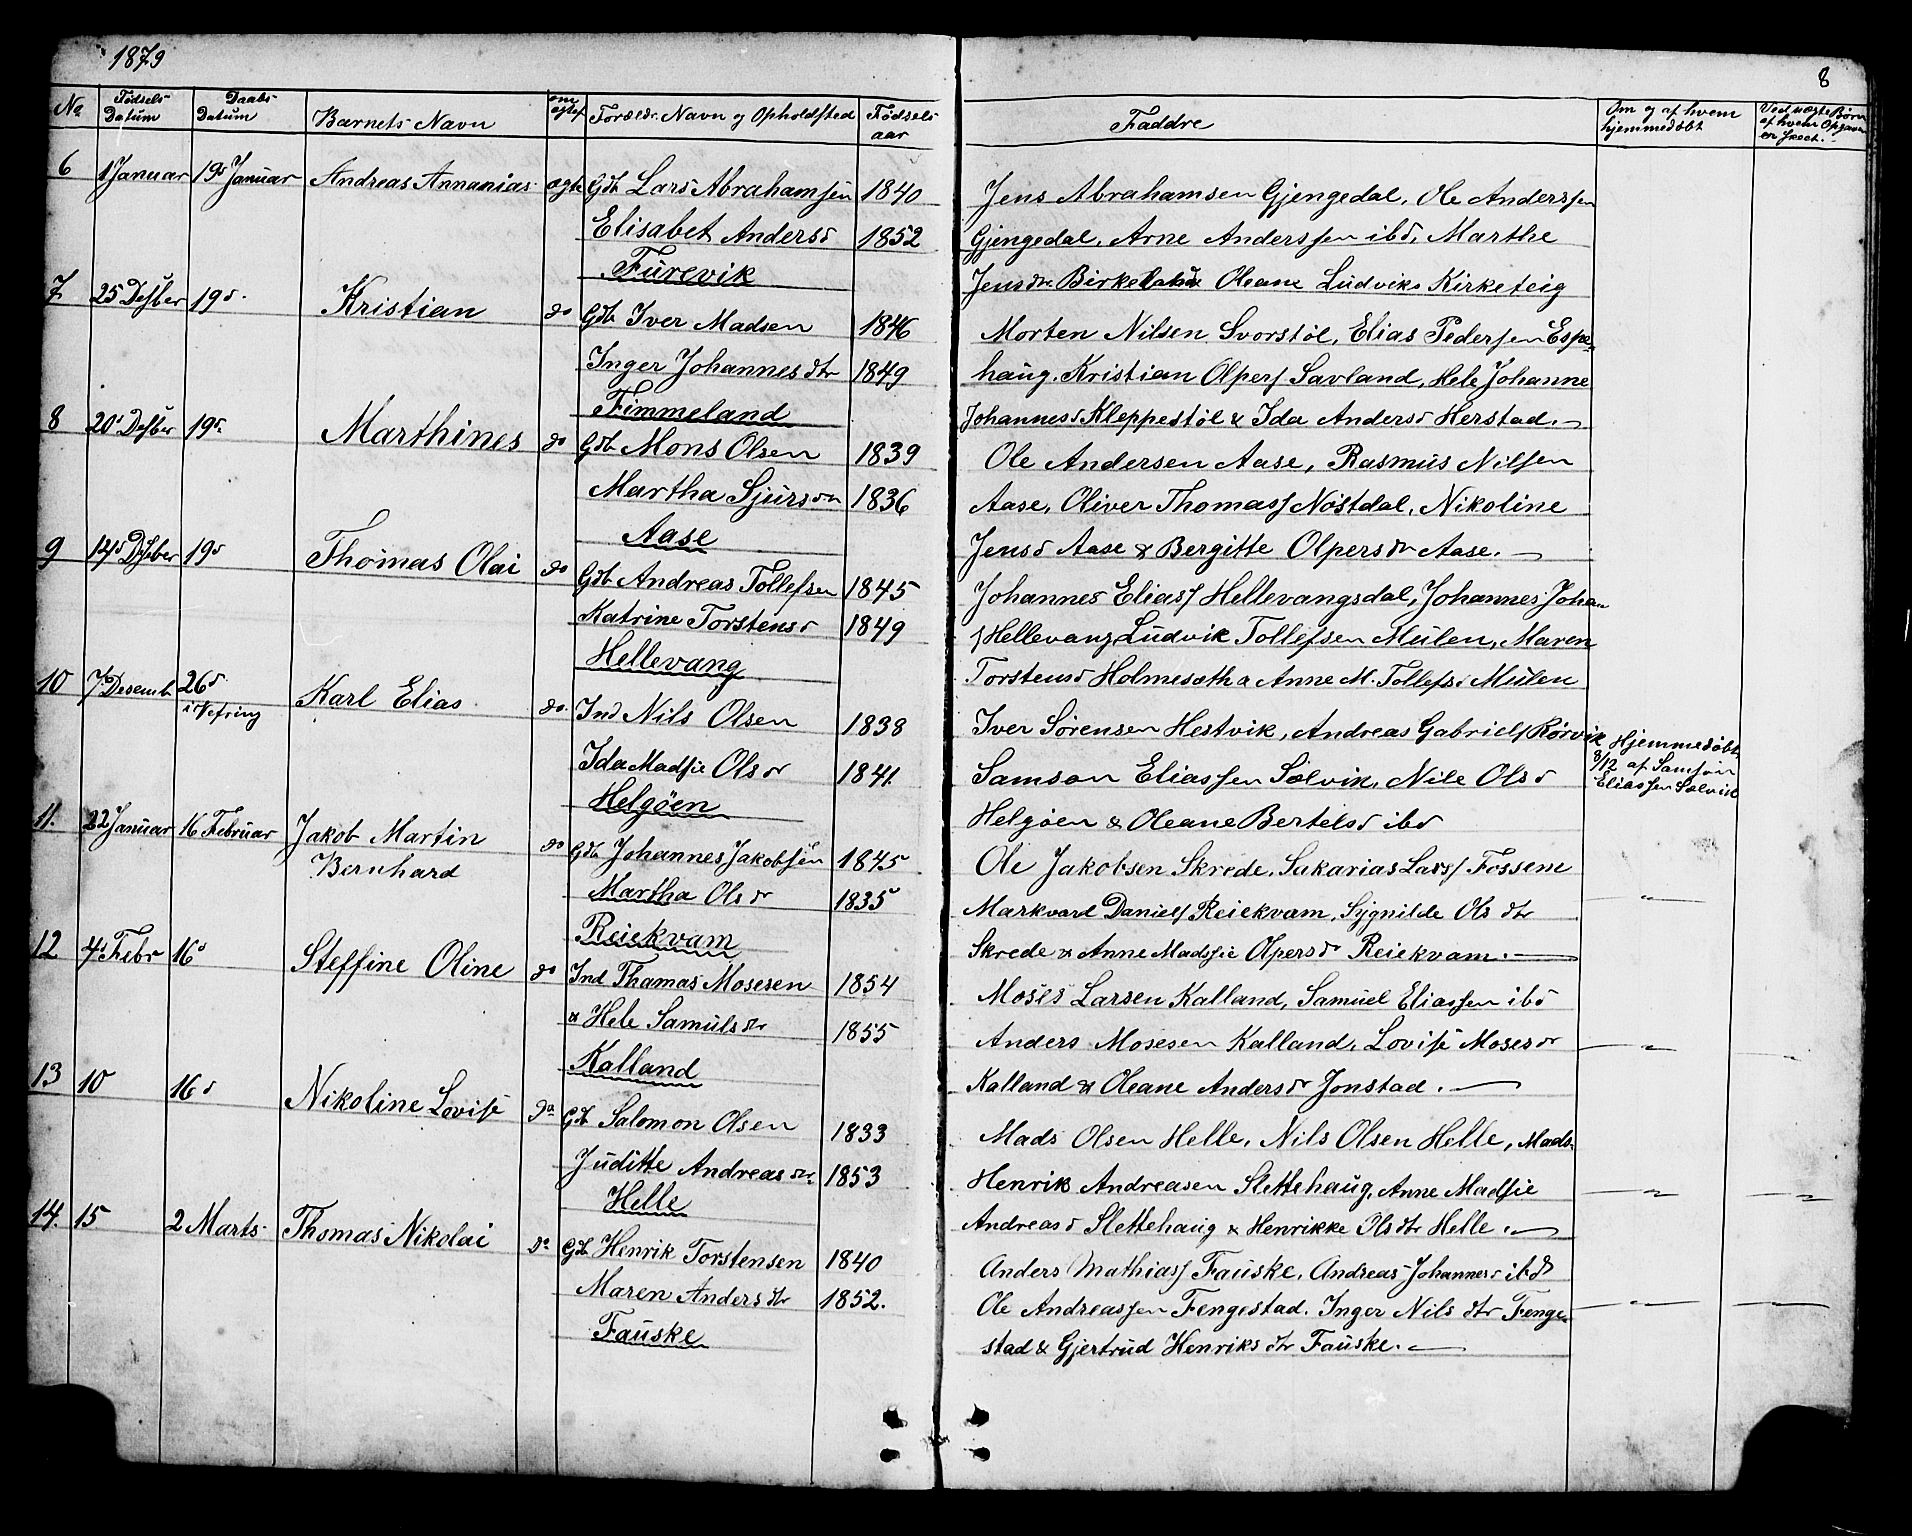 1879
8
No
Fødsels Datum
Daabs Datum
Barnets Navn
om ægtef
Foræld. Navn og Opholdsted
Fødsels aar
Faddre
Om og af hvem hjemmedøbt
Ved uægte Børn af hvem Opgaven er skeet.
6 1 Januar 19d Januar Andreas Annanias ægte Gdb Lars Abrahamsen 1840
Elisabet Andersd 1852
Furevik
Jens Abrahamsen Gjengedal, Ole Anderssen
Gjengedal, Arne Anderssen ibd, Marthe
Jensdtr Birkeland Oleane Ludviks Kirketeig
7 25 Desber 19d Kristian do Gdb Iver Madsen 1846
Inger Johannesdtr 1849
Fimmeland
Morten Nilsen Svorstøl, Elias Pedersen Espe-
haug, Kristian Olpers Savland, Hele Johanne
Johannesd Kleppestøl & Ida Andersd Herstad.
8 20d Desber 19d Marthines do Gdb Mons Olsen 1839
Martha Sjursdr 1836
Aase
Ole Andersen Aase, Rasmus Nilsen
Aase, Oliver Thomass Nøstdal, Nikoline
Jensd Aase & Bergitte Olpersdr Aase.
9 14d Desber 19d Thomas Olai do Gdb Andreas Tollefsen 1845
Katrine Torstensd 1849
Hellevang
Johannes Eliass Hellevangsdal, Johannes Johan
s Hellevang, Ludvik Tollefsen Mulen, Maren
Torstensd Holmesæth a Anne M. Tollefsd Mulen
10 7 Desemb 26d i Vefring Karl Elias do Ind Nils Olsen 1838
Ida Madsie Olsdr 1841
Helgøen
Iver Sørensen Hestvik, Andreas Gabriels Rørvik
Samson Eliassen Solvik, Nile Olsd
Helgøen & Oleane Bertelsd ibd
Hjemmedøbt
8/12 af Samson
Eliassen Solvik
11. 22 Januar 16 Februar Jakob Martin do Gdb Johannes Jakobsen 1845
Bernhard Martha Olsdr 1835
Reiekvam
Ole Jakobsen Skrede, Sakarias Larss Fossem
Markvard Daniels Reiekvam, Sygnilde Olsdtr
Skrede & Anne Madssie Olpersdr Reiekvam.
12 4d Febr 16d Steffine Oline do Ind Thamas Mosesen 1854
& Hele Samulsdtr 1855
Kalland
Moses Larsen Kalland, Samuel Eliassen ibd
Anders Mosesen Kalland, Lovise Mosesdr
Kalland & Oleane Andersdr Jonstad.
13 10 16d Nikoline Lovise do Gdb Salomon Olsen 1833
Juditte Andreasdtr 1853
Helle
Mads Olsen Helle, Nils Olsen Helle, Mads
Henrik Andreasen Slettehaug, Anne Madsie
Andreasd Slettehaug & Henrikke Olsdtr Helle.
14. 15 2 Marts Thomas Nikolai do Gdb Henrik Torstensen 1840
Maren Andersdtr 1852.
Fauske
Anders Mathiass Fauske, Andreas Johannesd ibd
Ole Andreassen Fengestad. Inger Nilsdtr Fenge-
stad & Gjertrud Henriksdtr Fauske.